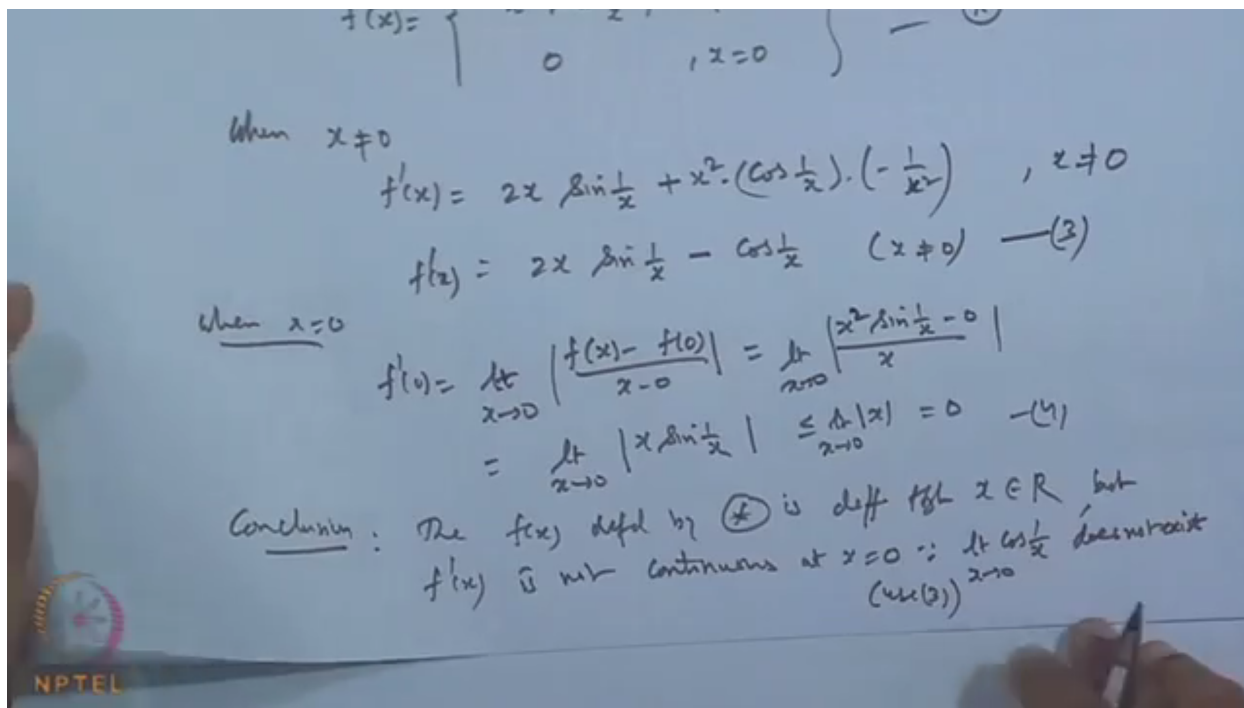 f(x)= { 0 , x=0 } —
When x≠0
f'(x)= 2x Sin 1/x + x²·(Cos 1/x)·(- 1/x²) , x≠0
f'(x) = 2x Sin 1/x - Cos 1/x (x≠0) —(3)
When x=0
f'(0)= lt x→0 |f(x)- f(0) / x-0| = lt x→0 |x² Sin 1/x - 0 / x|
= lt x→0 |x Sin 1/x| ≤ lt x→0 |x| = 0 -(4)
Conclusion : The f(x) defd by (*) is diff x ∈ R but
f'(x) is not continuous at x=0 ∵ lt x→0 Cos 1/x does not exist
(use(3))
NPTEL